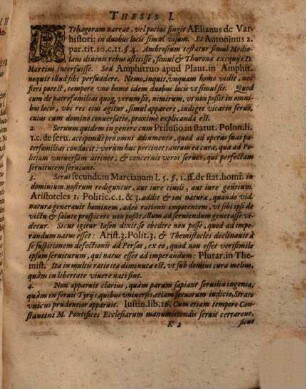 THESIS I.
PYthagoram narrat, vel potius fingit AElianus de Var
histori: in duobus locis simul visum. Et Antoninus 2
par. tit. 10. c. 11. §. 4. Ambrosium testatur simul Medio-
lani divinis rebus astitisse, simul & Thuronæ exequijs D.
Martini interfuisse. Sed Amphitruo apud Plaut. in Amphit.
nequit illud sibi persuadere. Nemo, inquit, unquam homo vidit, nec
fieri potest, tempore uno homo idem duobus locis ut simul sit. Quod
cum de patrefamiliâs quoq, verum sit, nimirum, ut non possit in omnibus
locis, ubi res eius agitur, simul apparere, indiget vicariis servis,
cuius cum domino consertatio, proximè explicanda est.
2. Servum quidem in genere cum Pristino in statut. Polon. li.
1. c. de serv. accipimus pro omni adiumento, quod ad operas suas pa-
terfamilias conducit: verùm huc pertinet tantum ea cura, quæ ad Po-
litiam universam attinet, & concernit veros servos, qui perfectam
servitutem serviunt.
3. Servus secundum Marcianum l. 5. §. 1. ff. de stat. homi: in
dominium nostrum redigitur, aut iure civili, aut iure gentium.
Aristoteles 1. Politic. c. 1. & 3. addit & ex natura, quando vid.
natura generosiores homines, adeò rationis impotentem, ut sibi ipsi de
victu & salute prospicere non possit, altum ad serviendum generasse vide-
tur. Sicut igitur talem divitiis credere non posse, quod ad impe-
randum natus esset: Arist. 2. Polit. 3. & Themistocles declinaturus
suspitionem defectionis ad Persas, ex eo, quod non esset verisimile
ipsum servituru, qui natus esset ad imperandum: Plutar. in The-
mist. Ita in multis ratio ea diminuta est, ut sub domini cura melius,
quàm in libertate vivere nati sint.
4. Non apparuit clarius, quàm parum sapiant servilia ingenia,
quàm in servis Tyrijs quibus universitatem servorum iudicio, Strato
unicus prudentior apparuit. Iustin. lib. 18. Cum etiam tempore Con-
stantini M. Pontifices Ecclesiarum manumittendis servis certarent,
K 2 sicut